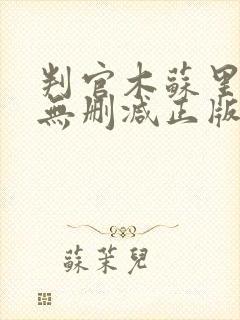 判官木蘇里
無刪減正版
蘇茉兒